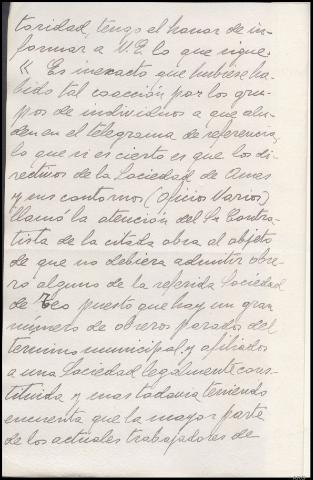 toridad, tengo el honor de in-
formar a V.E. lo que sigue.
"Es inexacto que hubiese ha-
bido tal coacción por los gru-
pos de individuos a que alu-
den en el telegrama de referencia,
lo que si es cierto es que los di-
rectivos de la Sociedad de Ames
y sus contornos (Oficios Varios)
llamó la atención del Sr Contra-
tista de la citada obra al objeto
de que no debiera admitir obre-
ro alguno de la referida Sociedad
de Teo puesto que hay un gran
número de obreros parados del
termino municipal y afiliados
a una Sociedad legalmente cons-
tituida y mas todavia teniendo
encuenta que la mayor parte
de los actuales trabajadores de